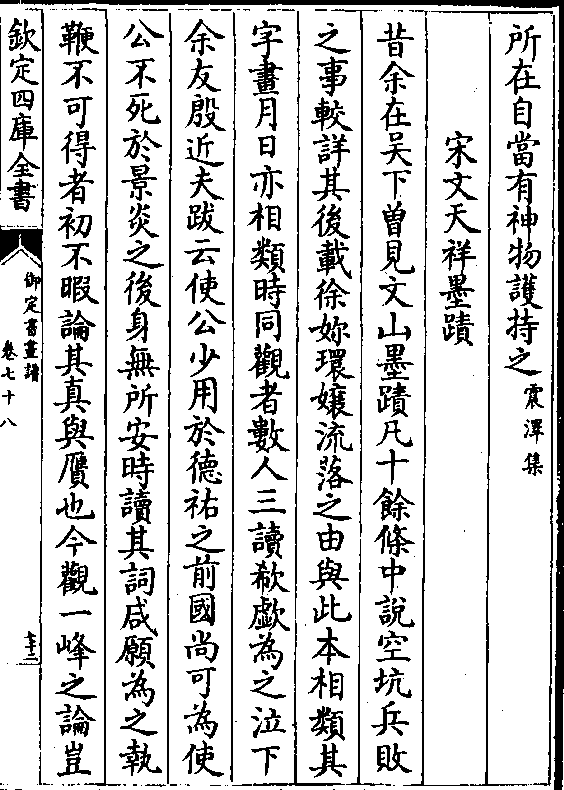 所在自當有神物護持之震澤集
宋文天祥墨蹟
昔余在吴下曽見文山墨蹟凡十餘條中說空坑兵敗
之事較詳其後載徐妳環孃流落之由與此本相類其
字畫月日亦相類時同觀者數人三讀欷歔為之泣下
余友殷近夫跋云使公少用於德祐之前國尚可為使
公不死於景炎之後身無所安時讀其詞咸願為之執
鞭不可得者初不暇論其真與贋也今觀一峰之論豈
欽定四庫全書
御定書畫譜
卷七十八